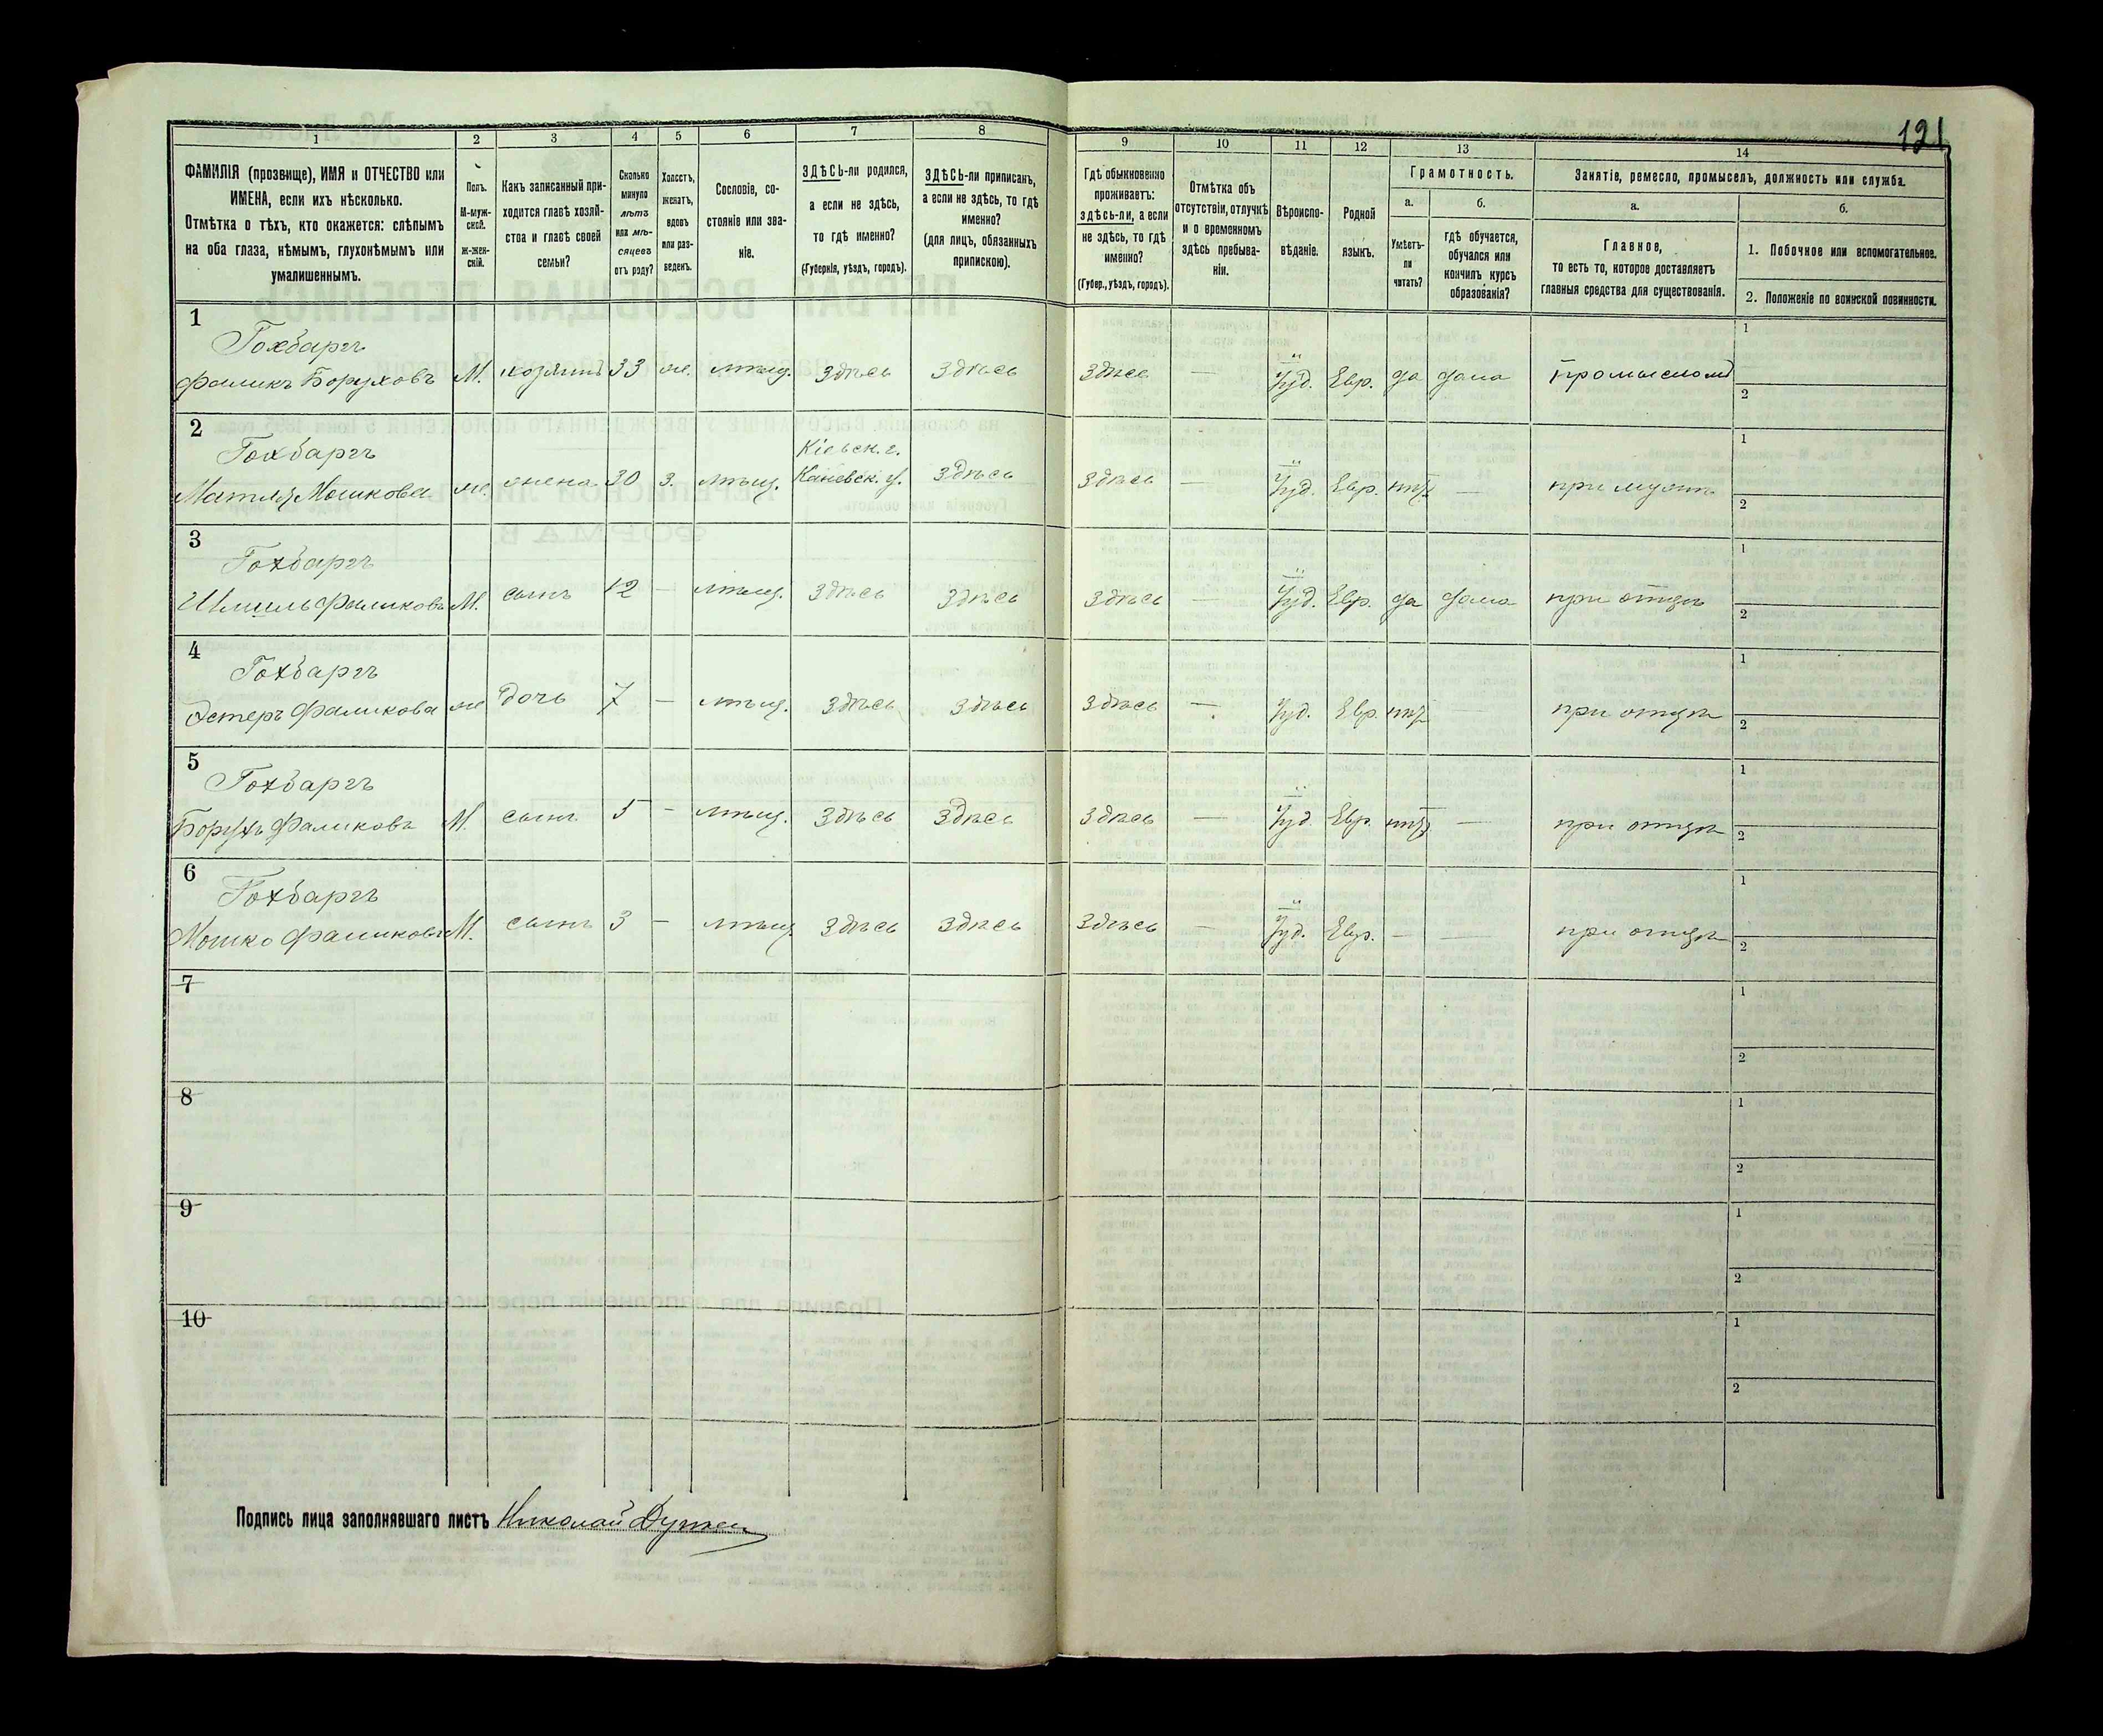 121
1 2 3 4 5 6 7 8 9 10 11 12 13 14
ФАМИЛІЯ (прозвище), ИМЯ и ОТЧЕСТВО или
ИМЕНА, если ихъ нѣсколько.
Отмѣтка о тѣхъ, кто окажется: слѣпымъ
на оба глаза, нѣмымъ, глухонѣмымъ или
умалишеннымъ.
Полъ.
М-муж-
ской.
Ж-жен-
скій.
Какъ записанный при-
ходится главѣ хозяй-
ства и главѣ своей
семьи?
Сколько
минуло
лѣтъ
или мѣ-
сяцевъ
отъ роду?
Холостъ,
женатъ,
вдовъ
или раз-
веденъ.
Сословіе, со-
стояніе или зва-
ніе.
ЗДѢСЬ-ли родился,
а если не здѣсь,
то гдѣ именно?
(Губернія, уѣздъ, городъ).
ЗДѢСЬ-ли приписанъ,
а если не здѣсь, то гдѣ
именно?
(для лицъ, обязанныхъ
припискою).
Гдѣ обыкновенно
проживаетъ:
здѣсь-ли, а если
не здѣсь, то гдѣ
именно?
(Губер., уѣздъ, городъ).
Отмѣтка объ
отсутствіи, отлучкѣ
и о временномъ
здѣсь пребыва-
ніи.
Вѣроиспо-
вѣданіе.
Родной
языкъ.
Грамотность.
а.
Умѣетъ-
ли
читать?
б.
гдѣ обучается,
обучался или
кончилъ курсъ
образованія?
Занятіе, ремесло, промыселъ, должность или служба.
а.
Главное,
то есть то, которое доставляетъ
главныя средства для существованія.
б.
1. Побочное или вспомогательное.
2. Положеніе по воинской повинности.
1
Гохбаргъ
Фаликъ Боруховъ М. хозяинъ 33 ж. мѣщ. здѣсь здѣсь здѣсь — Іуд. Евр. да дома промысломъ
1
2
2
Гохбаргъ
Кіевск. г.
Матля Мошкова ж. жена 30 з. мѣщ. Каневск. у. здѣсь здѣсь — Іуд. Евр. нѣт — при мужѣ
1
2
3
Гохбаргъ
Шмиль Фаликовъ М. сынъ 12 — мѣщ. здѣсь здѣсь здѣсь — Іуд. Евр. да дома при отцѣ
1
2
4
Гохбаргъ
Эстеръ Фаликова ж дочь 7 — мѣщ. здѣсь здѣсь здѣсь — Іуд. Евр. нѣт при отцѣ
1
2
5
Гохбаргъ
Борухъ Фаликовъ М. сынъ 5 — мѣщ. здѣсь здѣсь здѣсь — Іуд. Евр. нѣт — при отцѣ
1
2
6
Гохбаргъ
Мошко Фаликовъ М. сынъ 3 — мѣщ. здѣсь здѣсь здѣсь — Іуд. Евр. — — при отцѣ
1
2
7
1
2
8
1
2
9
1
2
10
1
2
Подпись лица заполнявшаго листъ Николай